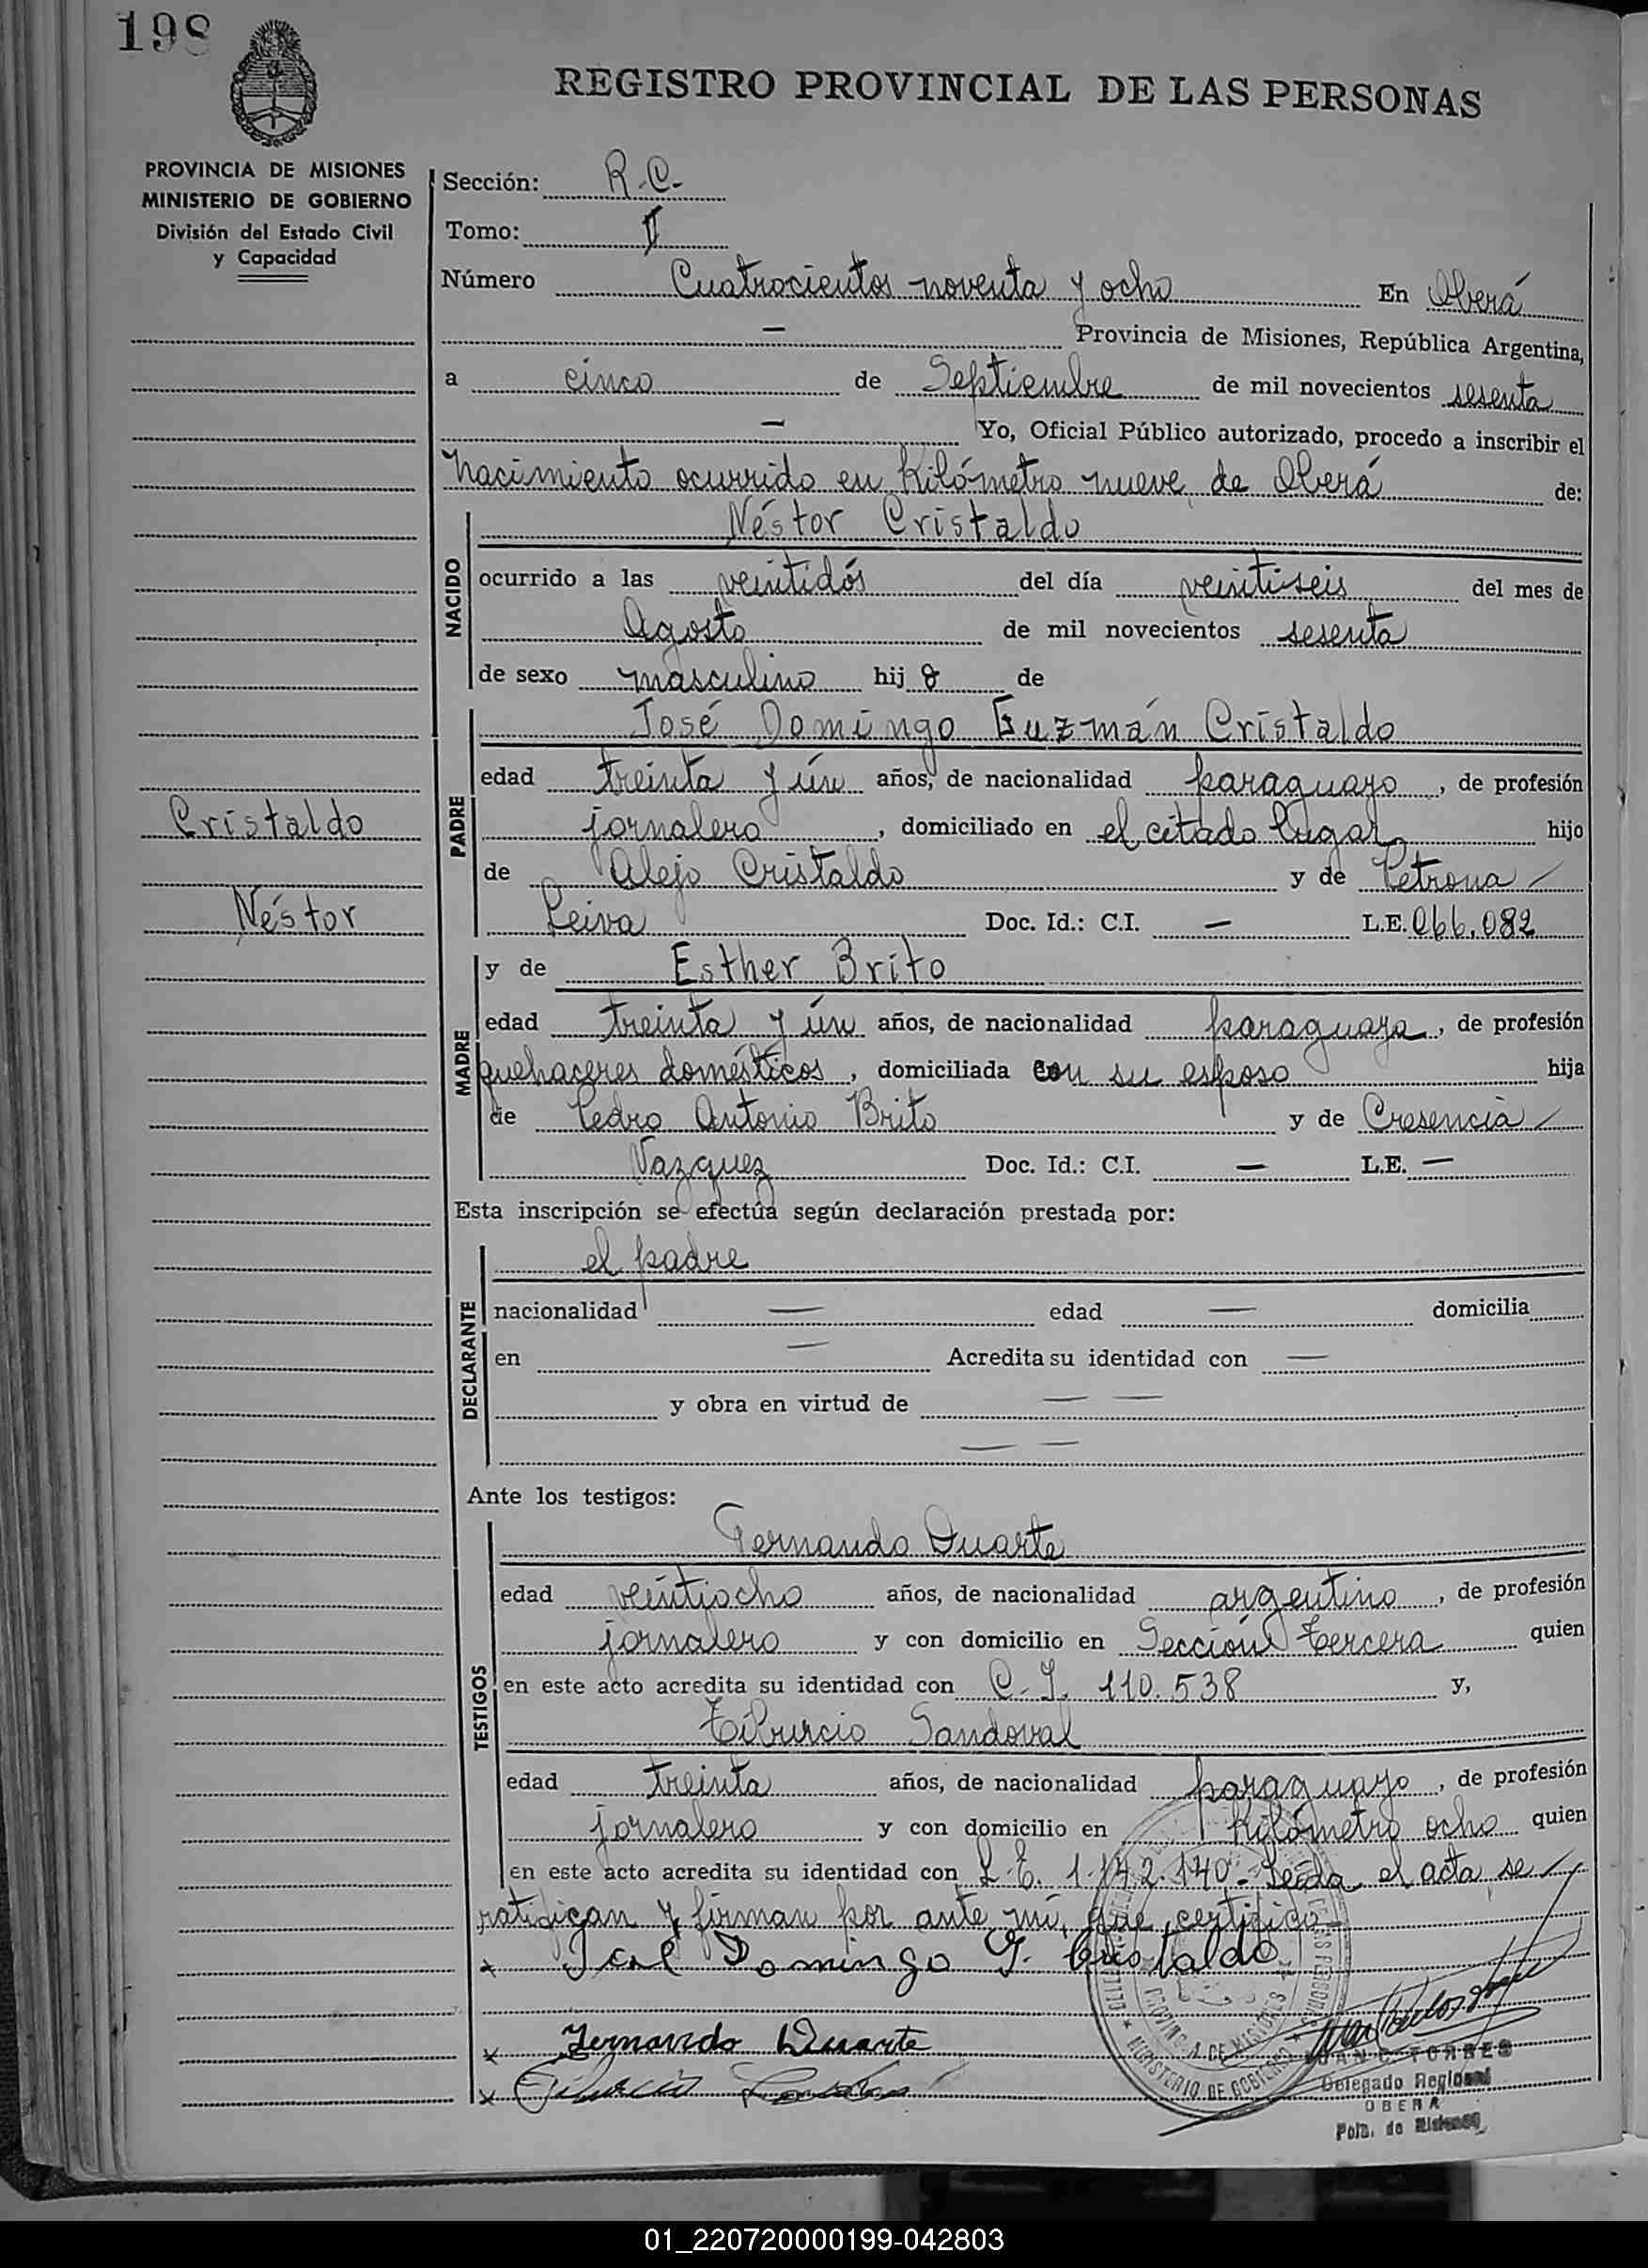 198
REGISTRO PROVINCIAL DE LAS PERSONAS
PROVINCIA DE MISIONES
MINISTERIO DE GOBIERNO
División del Estado Civil
y Capacidad
Sección: R.C.-
Tomo: II
Número Cuatrocientos noventa y ocho En Oberá
— Provincia de Misiones, República Argentina,
a cinco de Septiembre de mil novecientos sesenta
— Yo, Oficial Público autorizado, procedo a inscribir el
nacimiento ocurrido en Kilómetro nueve de Oberá de:
NACIDO
Néstor Cristaldo
ocurrido a las veintidós del día veintiseis del mes de
Agosto de mil novecientos sesenta
de sexo masculino hij o de
PADRE
José Domingo Guzmán Cristaldo
edad treinta y ún años, de nacionalidad paraguayo, de profesión
jornalero, domiciliado en el citado lugar hijo
de Alejo Cristaldo y de Petrona
Leiva Doc. Id.: C.I. — L.E. 066.082
Cristaldo
Néstor
MADRE
y de Esther Brito
edad treinta y ún años, de nacionalidad paraguaya, de profesión
quehaceres domésticos, domiciliada con su esposo hija
de Pedro Antonio Brito y de Cresencia
Vazquez Doc. Id.: C.I. — L.E. —
Esta inscripción se efectúa según declaración prestada por:
DECLARANTE
el padre
nacionalidad — edad — domicilia
en — Acredita su identidad con —
y obra en virtud de — —
— —
Ante los testigos:
TESTIGOS
Fernando Duarte
edad veintiocho años, de nacionalidad argentino, de profesión
jornalero y con domicilio en Sección tercera quien
en este acto acredita su identidad con C.I. 110.538 y,
Tiburcio Sandoval
edad treinta años, de nacionalidad paraguayo, de profesión
jornalero y con domicilio en Kilómetro ocho quien
en este acto acredita su identidad con L.E. 1.142.140.- Leída el acta se
ratifican y firman por ante mí, que certifico
x José Domingo G. Cristaldo
x Fernando Duarte
x Tiburcio
PROVINCIA DE MISIONES
MINISTERIO DE GOBIERNO
JUAN C. TORRES
Delegado Regional
OBERA
Pcia. de Misiones
01_220720000199-042803